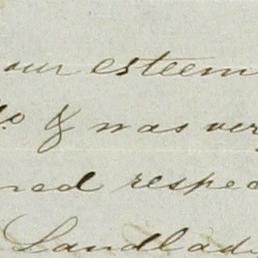 our esteem
& was ver
ned respec
Landlad